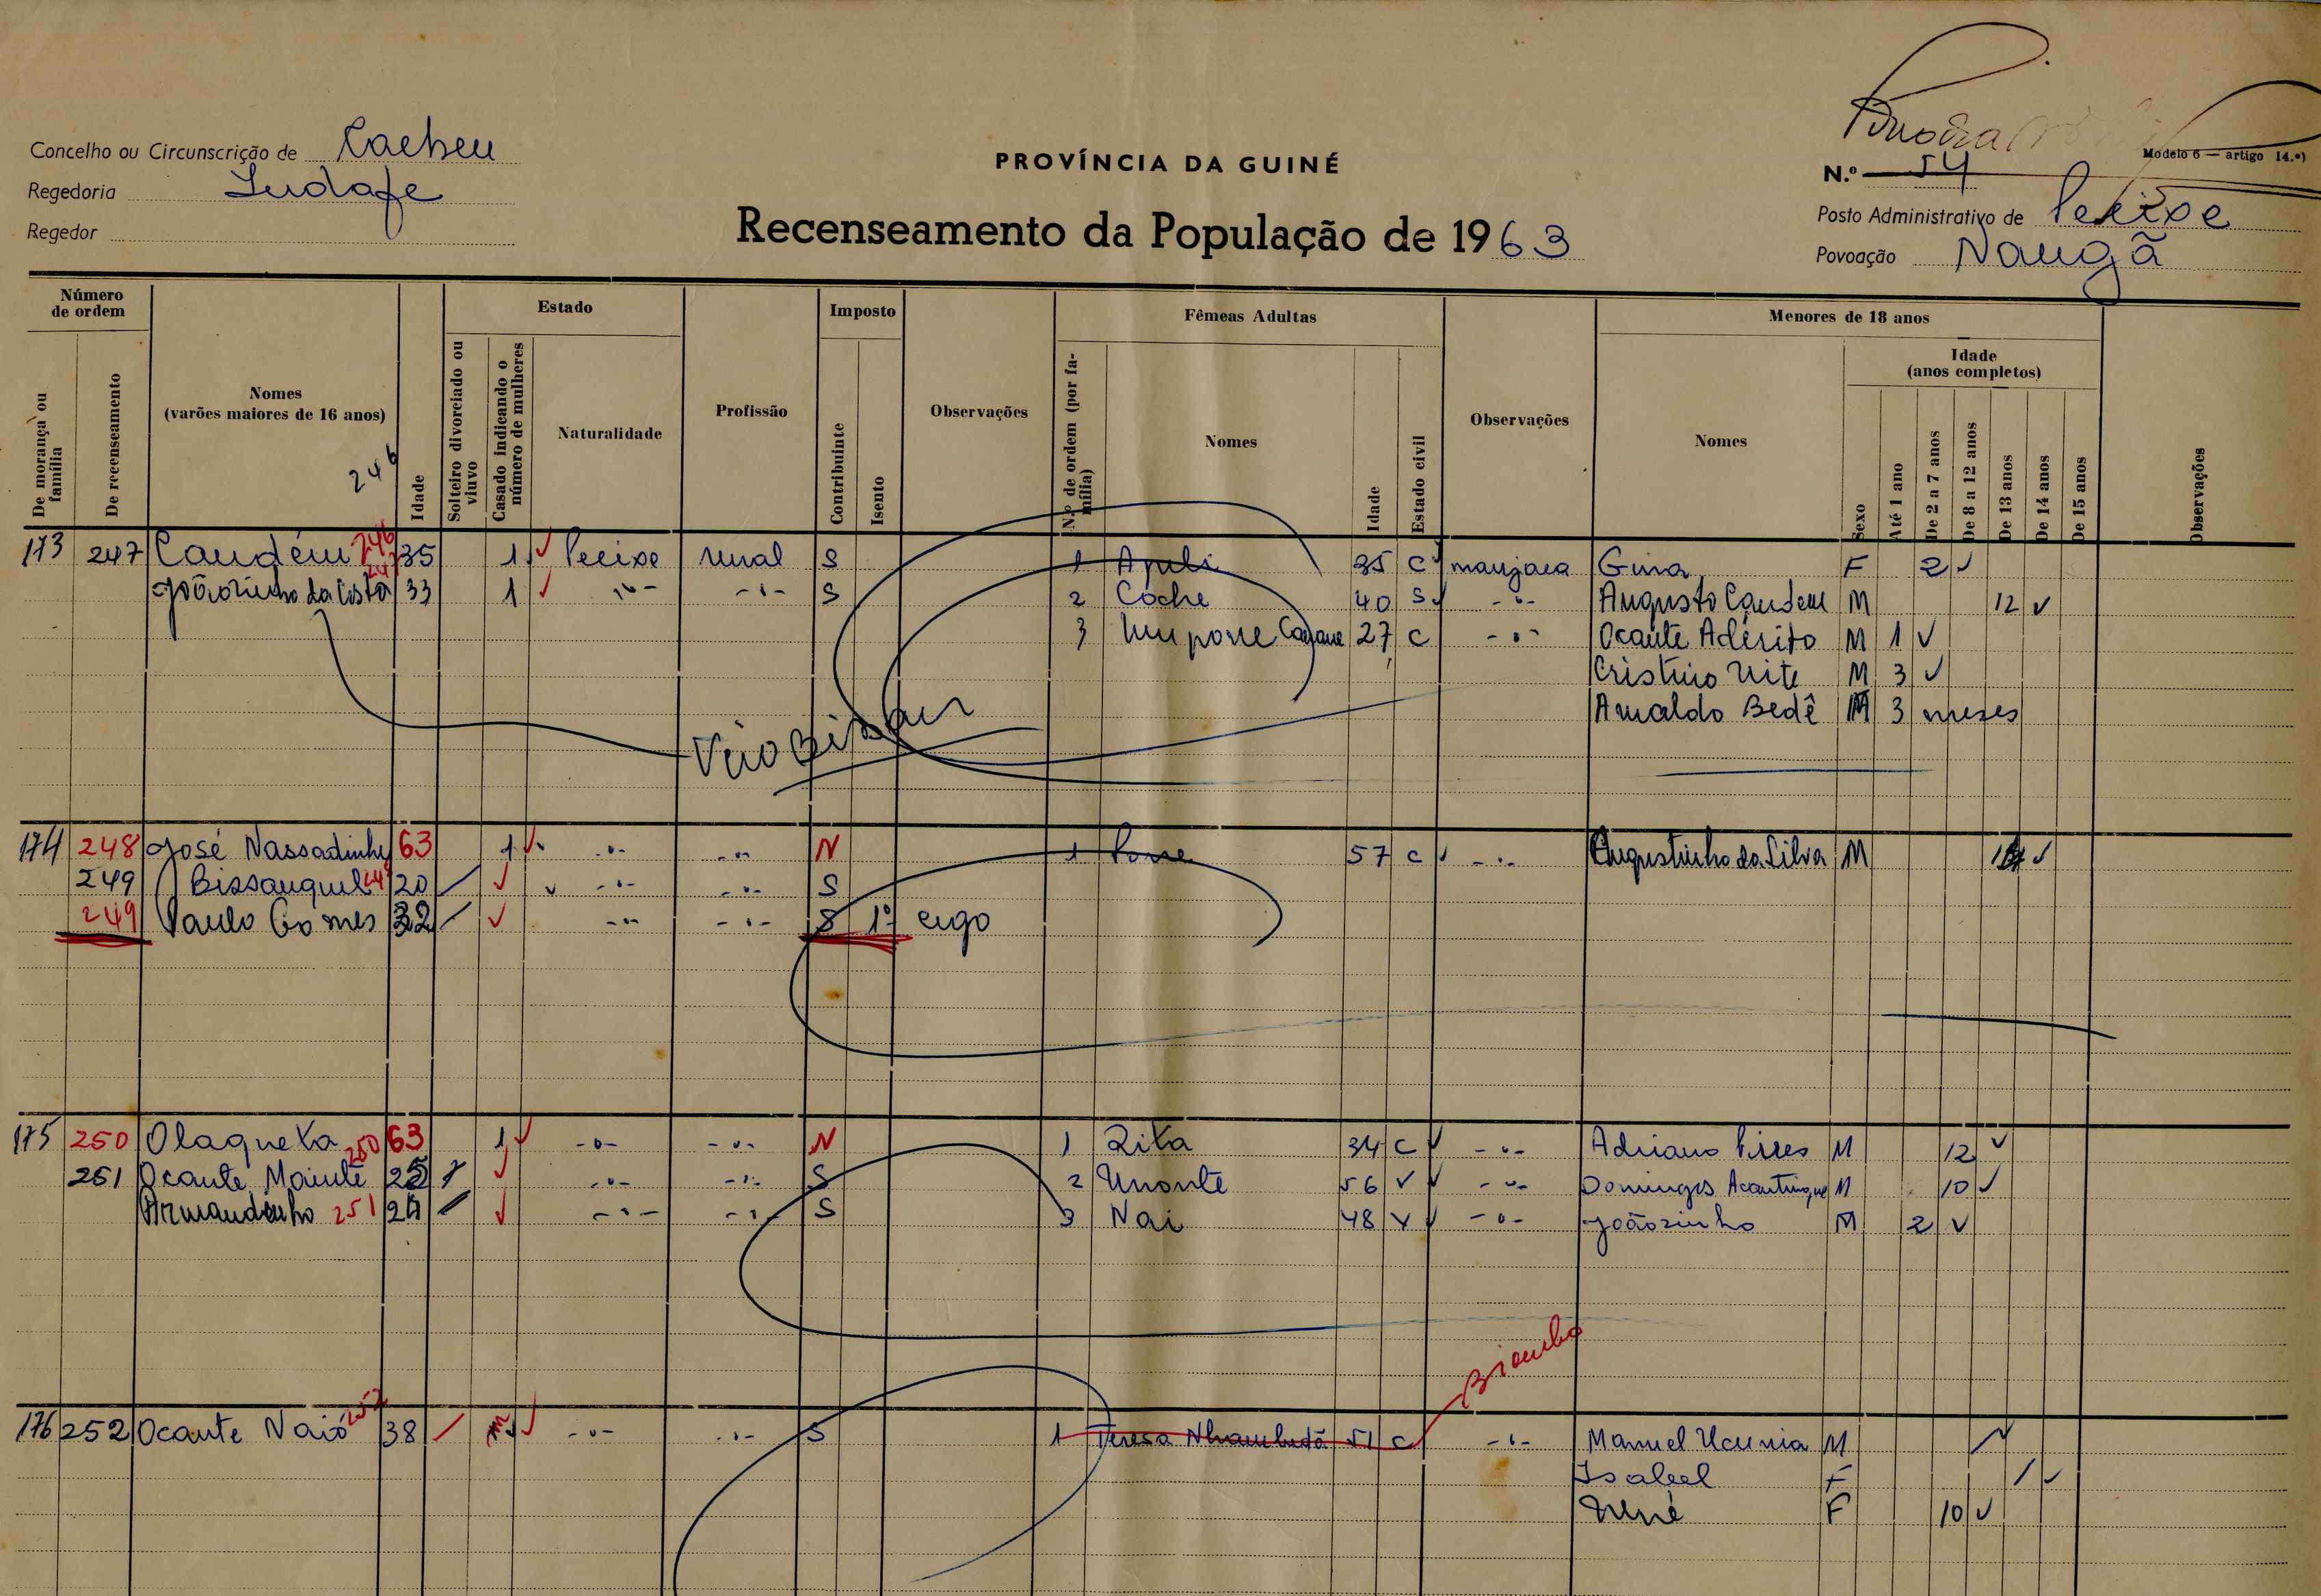 Concelho ou Circunscrição de Cacheu
Regedoria
Regedor
PROVÍNCIA DA GUINÉ
Recenseamento da População de 1963
Modelo 6 — artigo 14.º)
N.º 54
Posto Administrativo de Pecixe
Povoação Naugã
Número de ordem
De morança ou família
De recenseamento
Nomes (varões maiores de 16 anos)
246
Idade
Estado
Solteiro divorciado ou viuvo
Casado indicando o número de mulheres
Naturalidade
Profissão
Imposto
Contribuinte
Isento
Observações
Fêmeas Adultas
N.º de ordem (por família)
Nomes
Idade
Estado civil
Observações
Menores de 18 anos
Nomes
Sexo
Idade (anos completos)
Até 1 ano
De 2 a 7 anos
De 8 a 12 anos
De 13 anos
De 14 anos
De 15 anos
Observações
173 247 Caudém 246 35 1 Pecixe rural S 1 Apili 35 C manjaca Gina F 2
Joãozinho da Costa 247 33 1 -"- -"- S 2 Coche 40 S -"- Augusto Caudem M 12
3 27 C -"- Ocante Adérito M 1
M 3
Arnaldo Bedê M 3 meses
Veio Bissau
174 248 José Nassadinhe 63 1 -"- -"- N 1 57 C -"- Augustinho da Silva M 14
249 Bissauquil 20 -"- -"- S
249 Paulo Gomes 32 -"- -"- S 1º
175 250 Olaqueta 250 63 1 -"- -"- N 1 Zita 34 C -"- Adriano Pires M 12
251 Ocante Mainté 25 -"- -"- S 2 Unonte 56 V -"- Domingos M 10
Armandinho 251 24 -"- -"- S 3 Nai 48 V -"- Joãozinho M 2
Biombo
176 252 Ocante Naió 252 38 -"- -"- S 1 Teresa 51 C -"- Manuel Ucunia M
Isabel F
Nené F 10